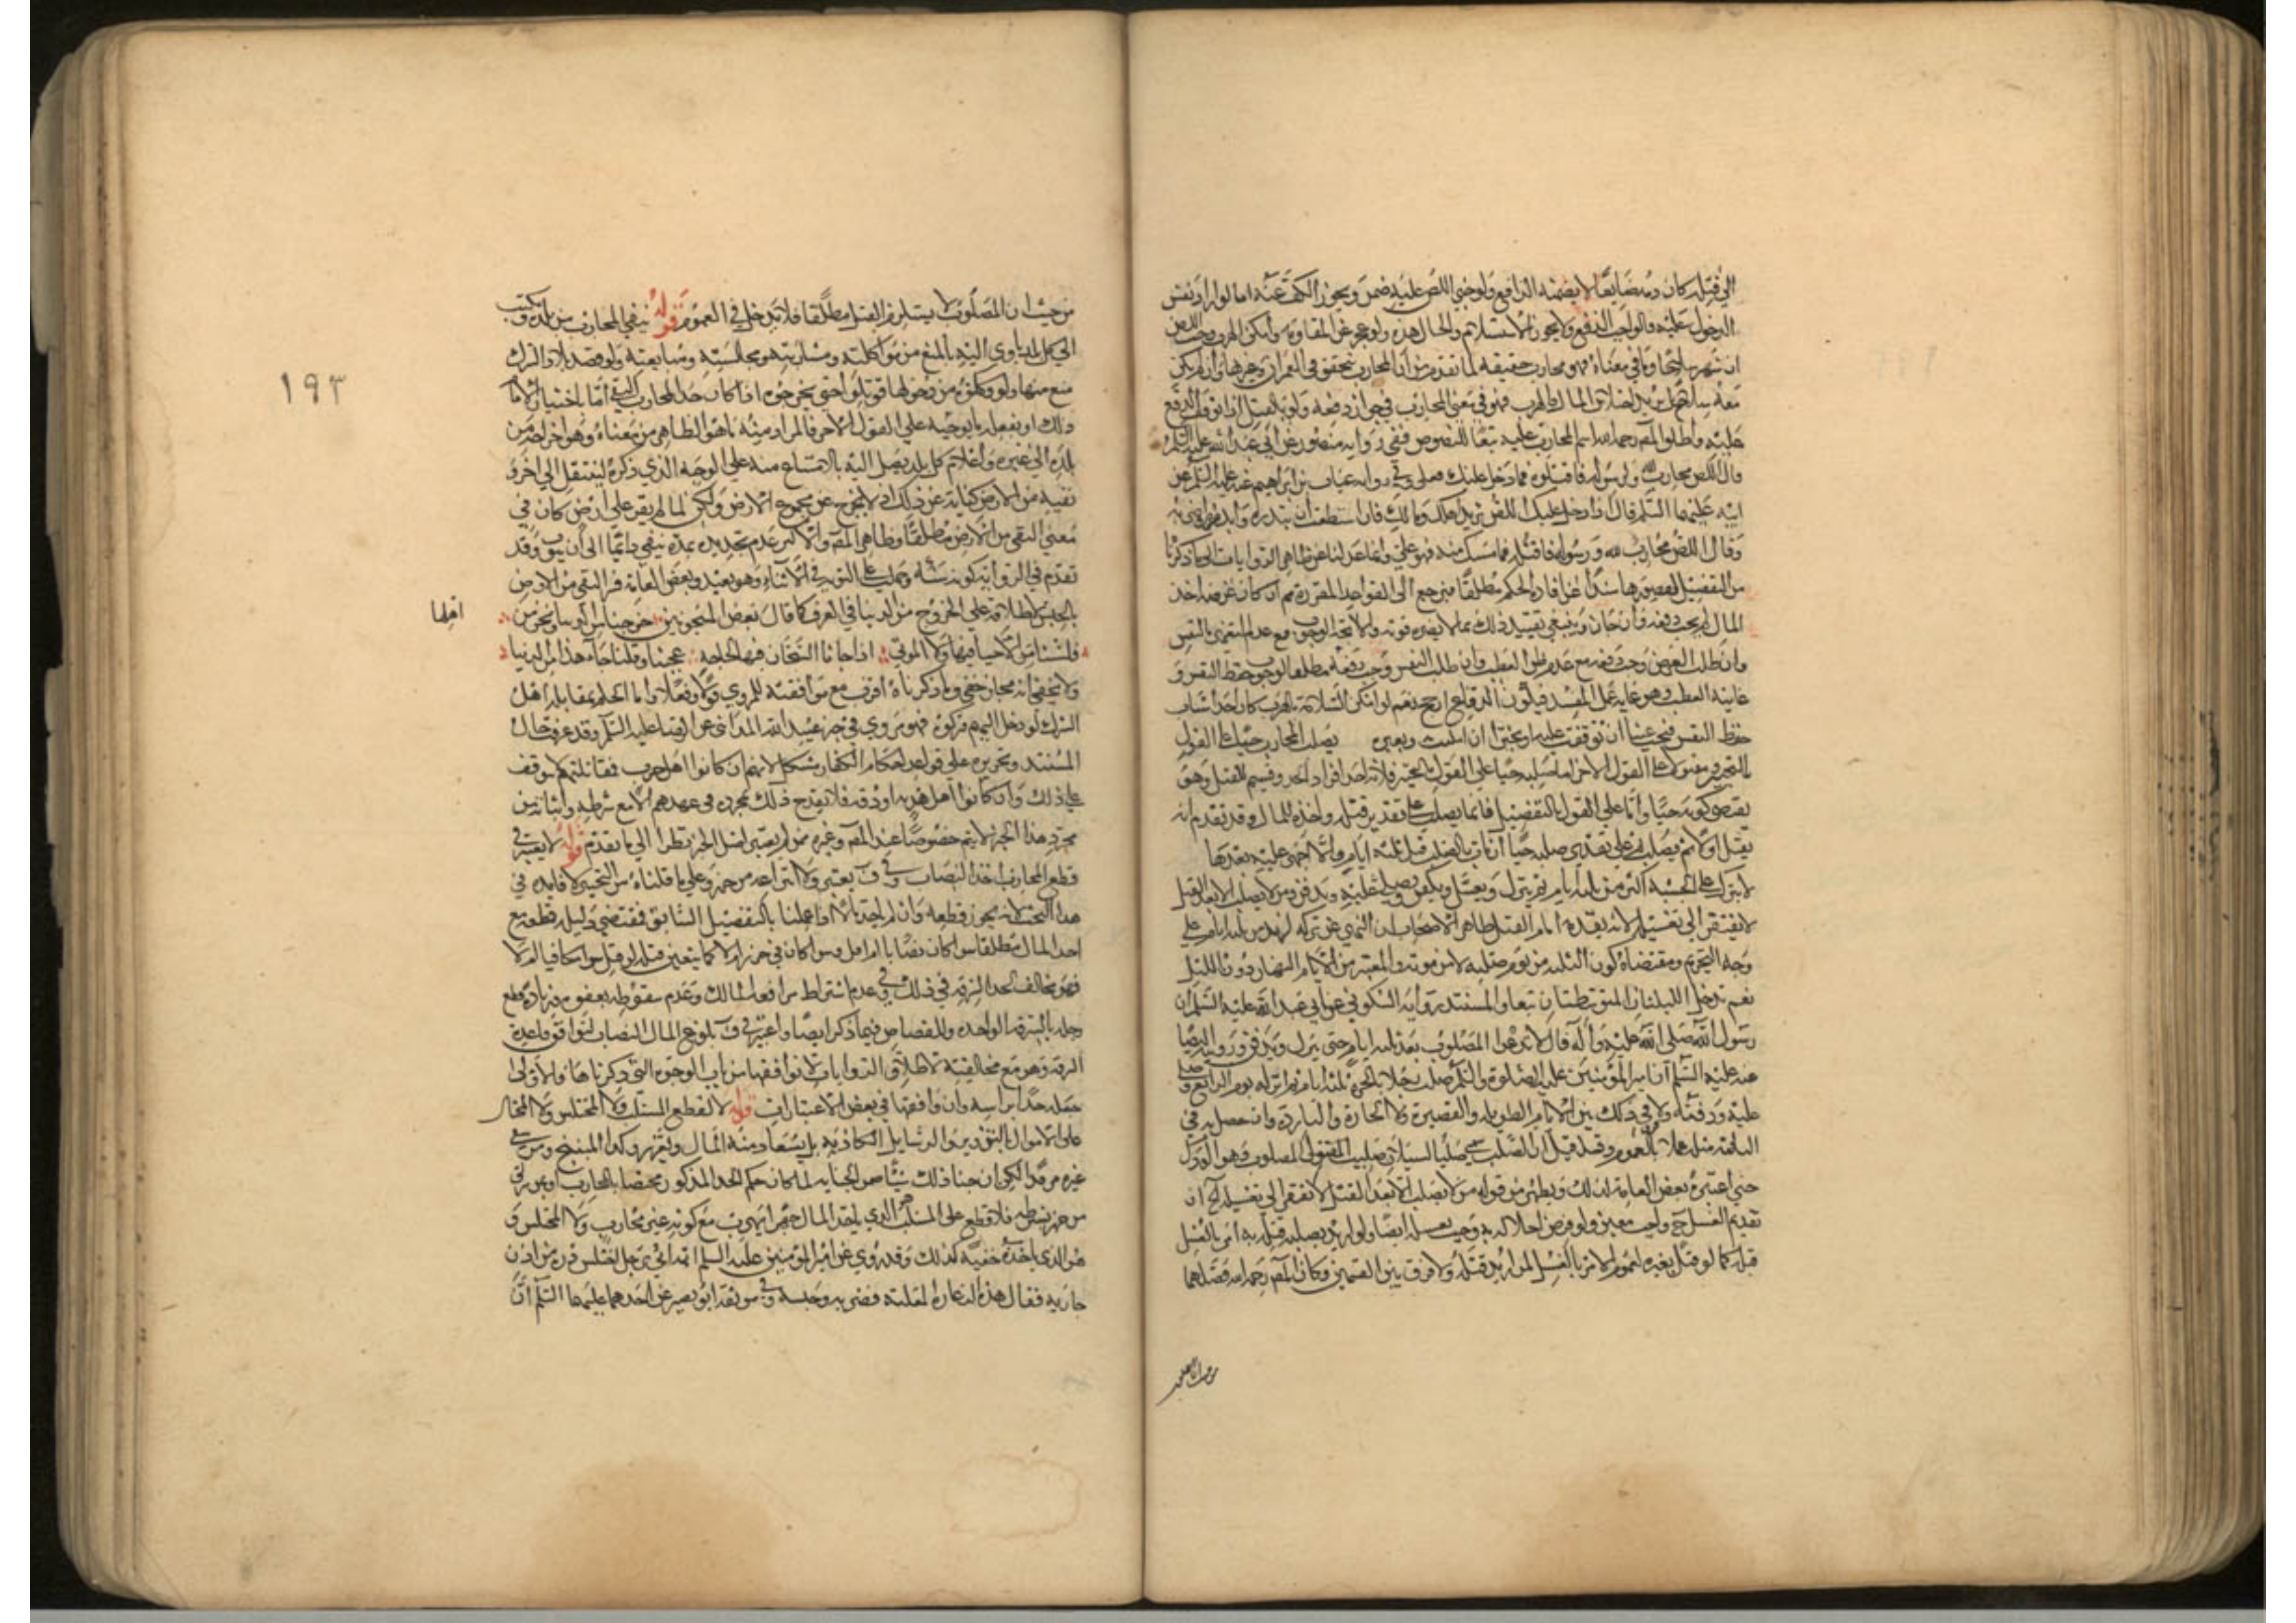 الى قتله كان دمه ضايعا لا يضمنه الدافع ولو جنى اللص عليه ضمن ويجوز الكف عنه اما لو اراد نفس
الدخول عليه فالواجب الدفع ولا يجوز الاستسلام والحال هذه ولو عجز عن المقاومة وامكن الهرب وجب اللص
ان شهر سلاحا وما في معناه فهو محارب حقيقة لما تقدم من ان المحاربة تتحقق في العمران وغيرها وان لم يكن
معه سلاح بل يريد اختلاس المال والهرب فهو في معنى المحارب في جواز دفعه ولو بالقتل اذا توقف الدفع
عليه واطلق المصم رحمه الله اسم المحارب عليه تبعا للنصوص ففي رواية منصور عن ابي عبد الله عليه السلم
قال اللص محارب لله ولرسوله فاقتلوه فما دخل عليك فعلي وفي رواية غياث بن ابراهيم عنه عليه السلم عن
ابيه عليهما السلم قال اذا دخل عليك اللص يريد اهلك ومالك فان استطعت ان تبدره وابدره واضربه
وقال اللص محارب لله ورسوله فاقتله فما مسك منه فهو علي وانما عدلنا عن ظاهر الروايات الى ما ذكرنا
من التفصيل لقصورها سندا عن افادة الحكم مطلقا فيرجع الى القواعد المقررة ثم ان كان غرضه اخذ
المال لم يجب دفعه وان جاز وينبغي تقييد ذلك بما لا يضره فوته والا اتجه الوجوب مع عدم التغرير بالنفس
وان طلب العرض وجب دفعه مع عدم ظن العطب وان طلب النفس وجب دفعه مطلقا لوجوب حفظ النفس و
غايته العطب وهو غاية عمل المفسد فيكون الدفاع ارجح نعم لو امكن السلامة بالهرب كان احد اسباب
حفظ النفس فيجب عينا ان توقفت عليه او تخييرا ان امكنت به وبغيره يصلب المحارب حيا على القول
بالتخيير ومقتولا على القول الاخر اما صلبه حيا على القول بالتخيير فلانه احد افراد الحد وقسيم للقتل وهو
يقتضي كونه حيا واما على القول بالتفصيل فانما يصلب على تقدير قتله واخذه للمال وقد تقدم انه
يقتل اولا ثم يصلب ثم على تقدير صلبه حيا ان مات بالصلب قبل ثلثة ايام والا اجهز عليه بعدها
لا يترك على الخشبة اكثر من ثلثة ايام ثم ينزل ويغسل ويكفن ويصلى عليه ويدفن ومن لا يصلب الا بعد القتل
لا يفتقر الى تغسيله لانه يقدمه امام القتل ظاهر الاصحاب ان النهي عن تركه ازيد من ثلثة ايام على
وجه التحريم ومقتضاه كون الثلثة من يوم صلبه لا من موته والمعتبر من الايام النهار دون الليل
نعم تدخل الليلتان المتوسطتان تبعا والمستند رواية السكوني عن ابي عبد الله عليه السلم ان
رسول الله صلى الله عليه وآله قال لا تدعوا المصلوب بعد ثلثة ايام حتى ينزل ويدفن وروايته ايضا
عنه عليه السلم ان امير المؤمنين عليه الصلوة والسلم صلب رجلا بالحيرة ثلثة ايام ثم انزله يوم الرابع وصلى
عليه ودفنه ولا فرق في ذلك بين الايام الطويلة والقصيرة ولا الحارة والباردة وان حصل به في
الثلثة مثلة عملا بالعموم وقد قيل ان الصلب سمي صلبا لسيلان صليب المقتول المصلوب وهو الودك
حتى اعتبره بعض العامة لذلك ويظهر من قوله من لا يصلب الا بعد القتل لا يفتقر الى تغسيله الخ ان
تقديم الغسل ح واجب معين ولو فرض اخلاله به وجب تغسيله ايضا ولو اريد صلبه قبله به امر بالغسل
قبله كما لو قتل بغيره لعموم الامر بالغسل لمن اريد قتله ولا فرق بين القسمين وكان المصم رحمه الله فصلهما
من حيث ان المصلوب لا يستلزم القتل مطلقا فلا تدخل في العموم قوله ينفى المحارب من بلده ويكتب
الى كل بلد ياوى اليه بالمنع من مواكلته ومشاربته ومجالسته ومبايعته ولو قصد بلاد الشرك
منع منها ولو مكنوه من دخولها قوتلوا حتى يخرجوه اذا كان حد المحارب النفي اما باختيار الامام
ذلك او بفعله ما يوجبه على القول الاخر فالمراد منه ما هو الظاهر من معناه وهو اخراجه من
بلده الى غيره واعلام كل بلد يصل اليه بالامتناع منه على الوجه الذي ذكره لينتقل الى اخر و
نفيه من الارض كناية عن ذلك اذ لا يخرج عن مجموع الارض ولكن لما لم يقر على ارض كان في
معنى النفي من الارض مطلقا وظاهر المصم والاكثر عدم تحديده بمدة بل ينفى دائما الى ان يتوب وقد
تقدم في الرواية كونه سنة وحملت على التوبة في الاثناء وهو بعيد وبعض العامة فسر النفي من الارض
بالحبس لاطلاقه على الخروج من الدنيا في العرف كما قال بعض المسجونين خرجنا من الدنيا ونحن من
اهلها
فلسنا من الاحيا فيها ولا الموتى اذا جاءنا السجان فيها لحاجة عجبنا وقلنا جاء هذا من الدنيا
ولا يخفى انه مجاز خفي وما ذكرناه اقرب مع موافقته للمروي قولا وفعلا واما الحكم بمقاتلة اهل
الشرك لو دخل اليهم فاووه فهو مروي في خبر عبيد الله المدائني عن الرضا عليه السلم وقد عرفت حال
المستند وتحريره على قواعد احكام الكفار مشكل لانهم ان كانوا اهل حرب فقتالهم لا يتوقف
على ذلك وان كانوا اهل هدنة او ذمة فلا يقدح ذلك بمجرده في عهدهم الا مع شرطه واثباته من
مجرد هذا الخبر لا يتم خصوصا عند المصم وغيره ممن لم يعتبر اصل الخبر نظرا الى ما تقدم قوله لا يعتبر في
قطع المحارب اخذ النصاب وفي ف يعتبر ولا انتزاعه من حرز وعلى ما قلناه من التخيير لا فايدة في
هذا البحث لانه يجوز قطعه وان لم ياخذ مالا اذا عملنا بالتفصيل السابق فمقتضى دليله قطعه مع
اخذ المال مطلقا سواء كان نصابا ام اقل وسواء كان في حرز ام لا كما يتعين قتله لو قتل سواء كان مكافيا ام لا
فهو مخالف لحد السرقة في ذلك وفي عدم اشتراط مرافعة المالك وعدم سقوطه بعفوه مع زيادة قطع
رجله بالسرقة الواحدة وللقصاص فيما ذكر ايضا واعتبر في ف بلوغ المال النصاب ليوافق قاعدة
السرقة وهو مع مخالفته لاطلاق الروايات لا يوافقها من باب الوجوه التي ذكرناها فالاولى
جعله حدا براسه وان وافقها في بعض الاعتبارات قوله لا يقطع المستلب ولا المختلس ولا المحتال
على الاموال بالتزوير والرسايل الكاذبة بل يستعاد منه المال ويعزر وكذا المبنج ومن سقى
غيره مرقدا لكن ان جنا ذلك شيئا ضمن الجناية لما كان حكم الحد المذكور مختصا بالمحارب او بمن سرق
من حرز بشرطه فلا قطع على المستلب الذي ياخذ المال جهرا ويهرب مع كونه غير محارب ولا المختلس و
هو الذي ياخذه خفية كذلك وقد روي عن امير المؤمنين عليه السلم انه اتي برجل اختلس درة من اذن
جارية فقال هذه الدغارة المعلنة فضربه وحبسه وفي موثقة ابو بصير عن احدهما عليهما السلم ان
١٩٣